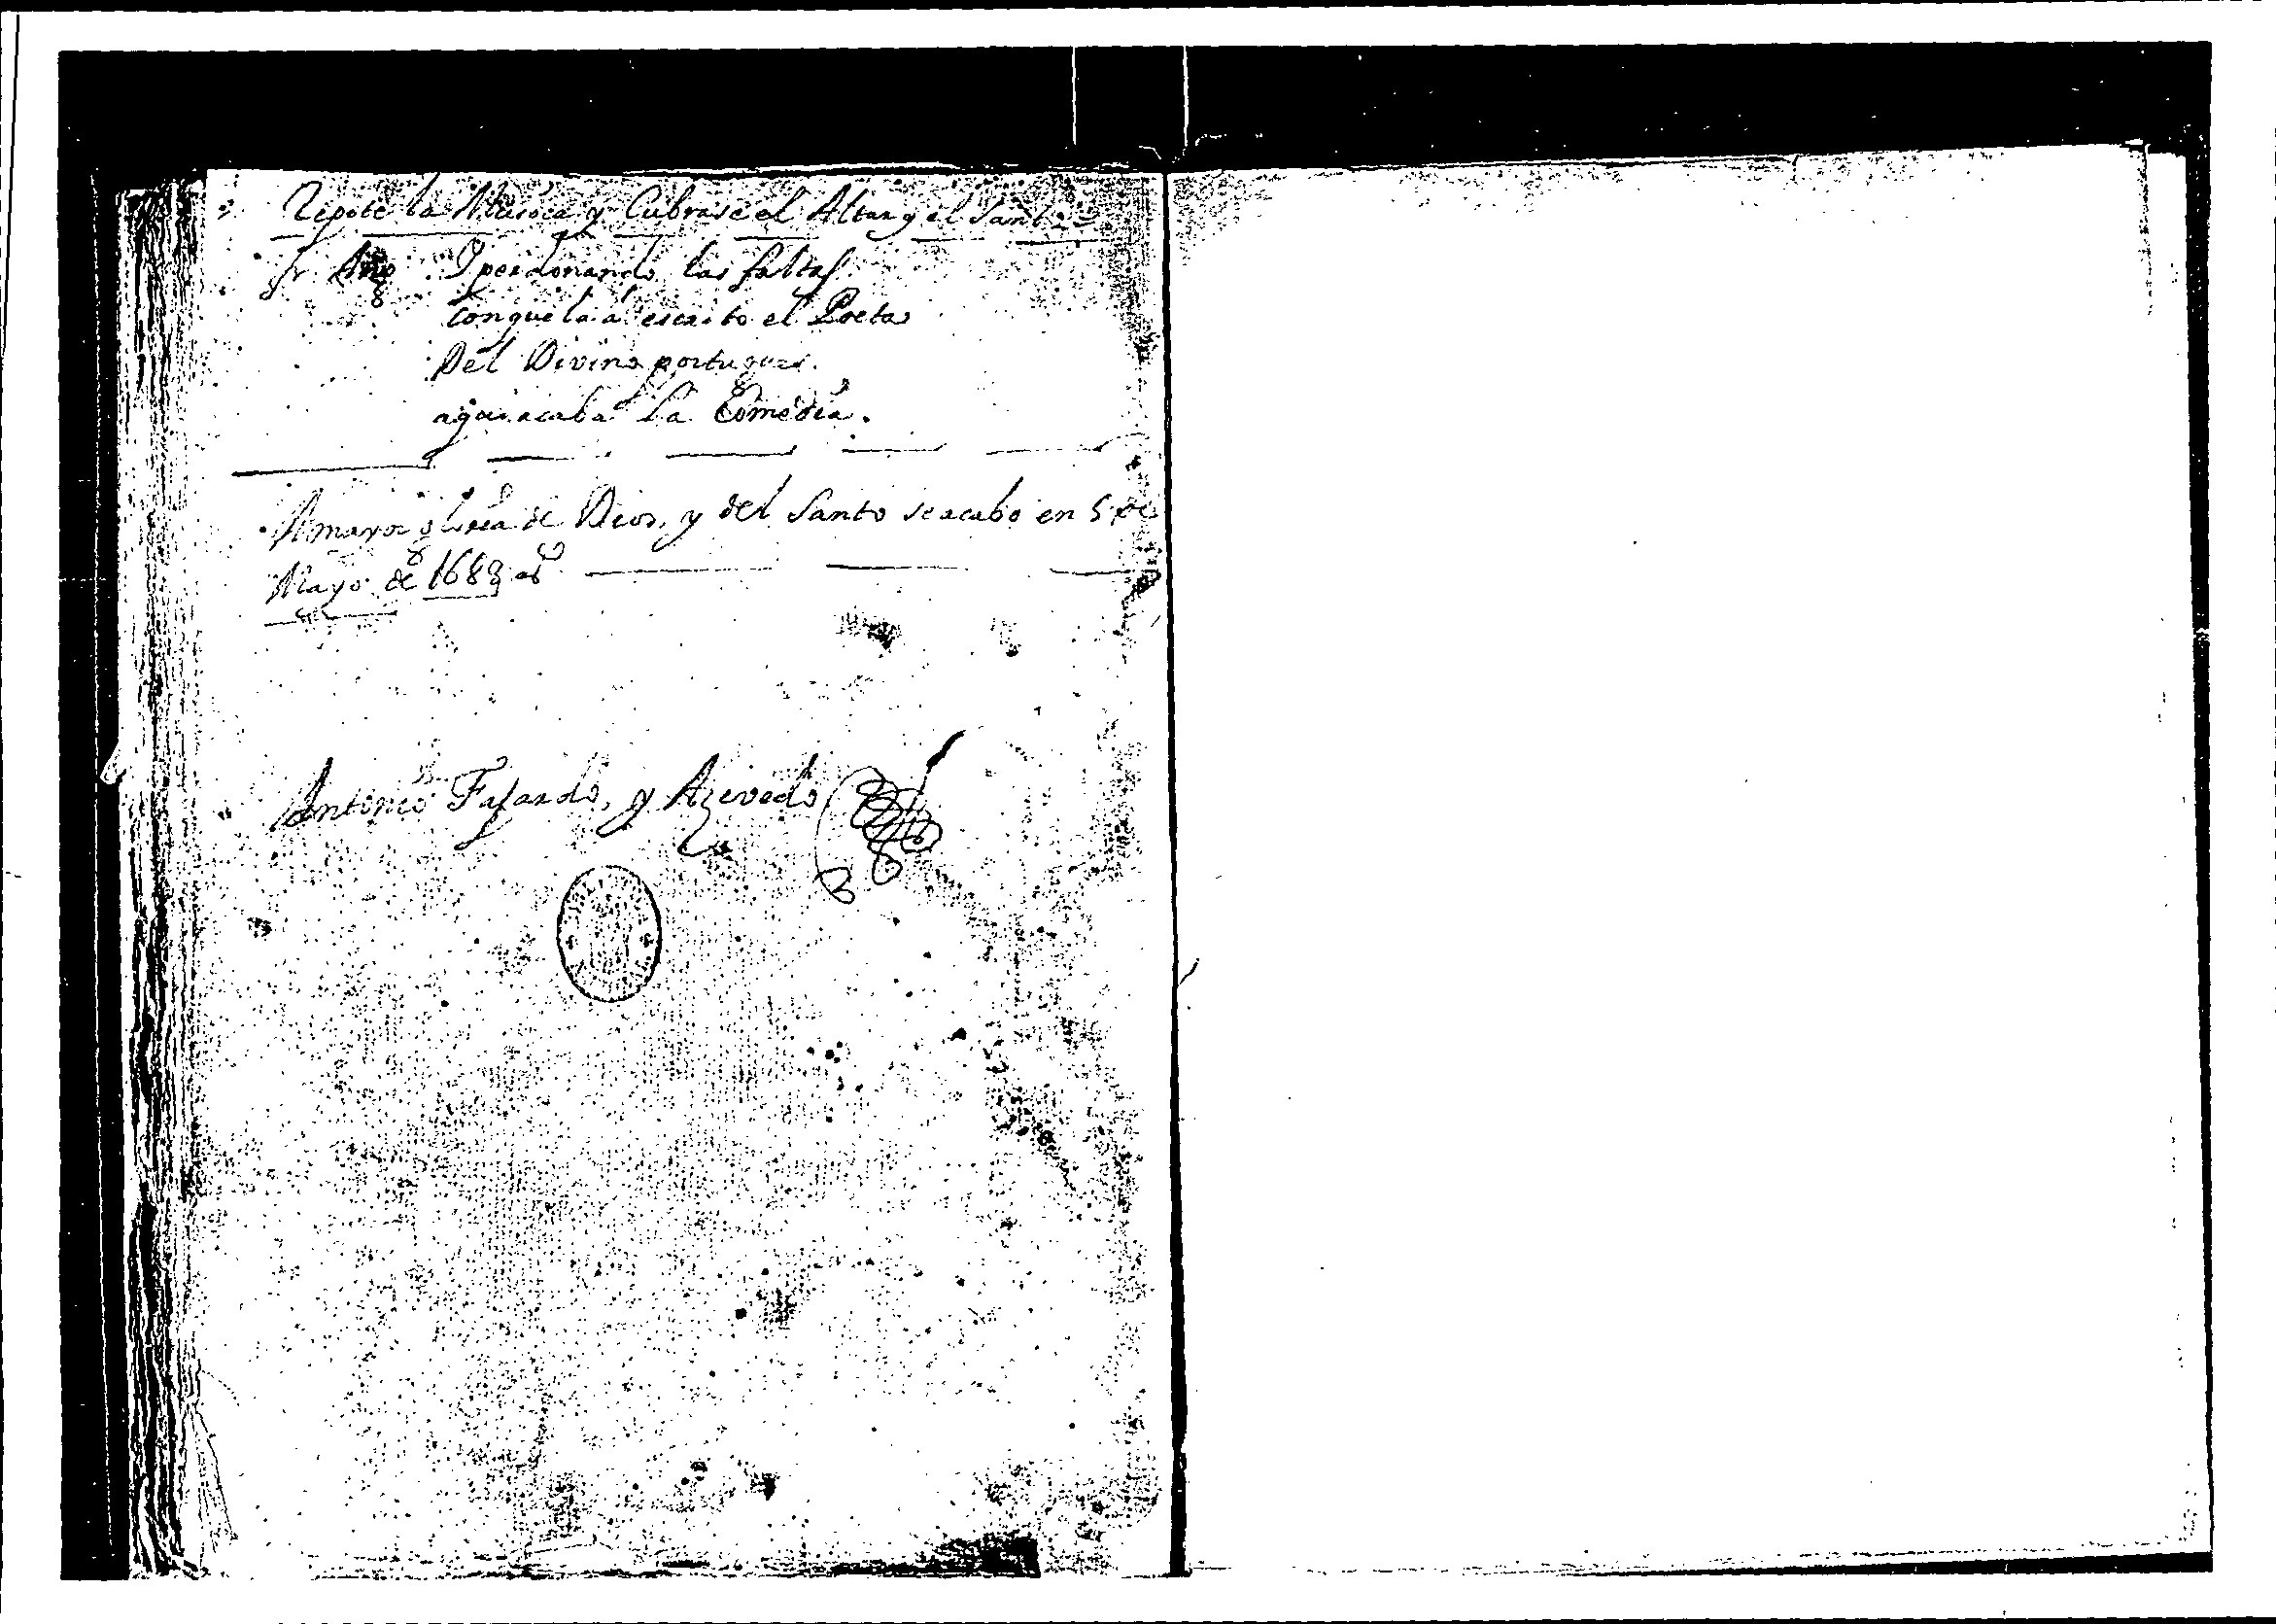 Repite la Musica y Cubrase el Altar y el Santo
fr Anto Y perdonando las faltas
con que la a escrito el Poeta
Del Divino portugues
aqui acaba la Comedia.
A mayor gloria de Dios, y del Santo se acabo en 5 de
Mayo de 1689 as
Antonio Fajardo, y Azevedo